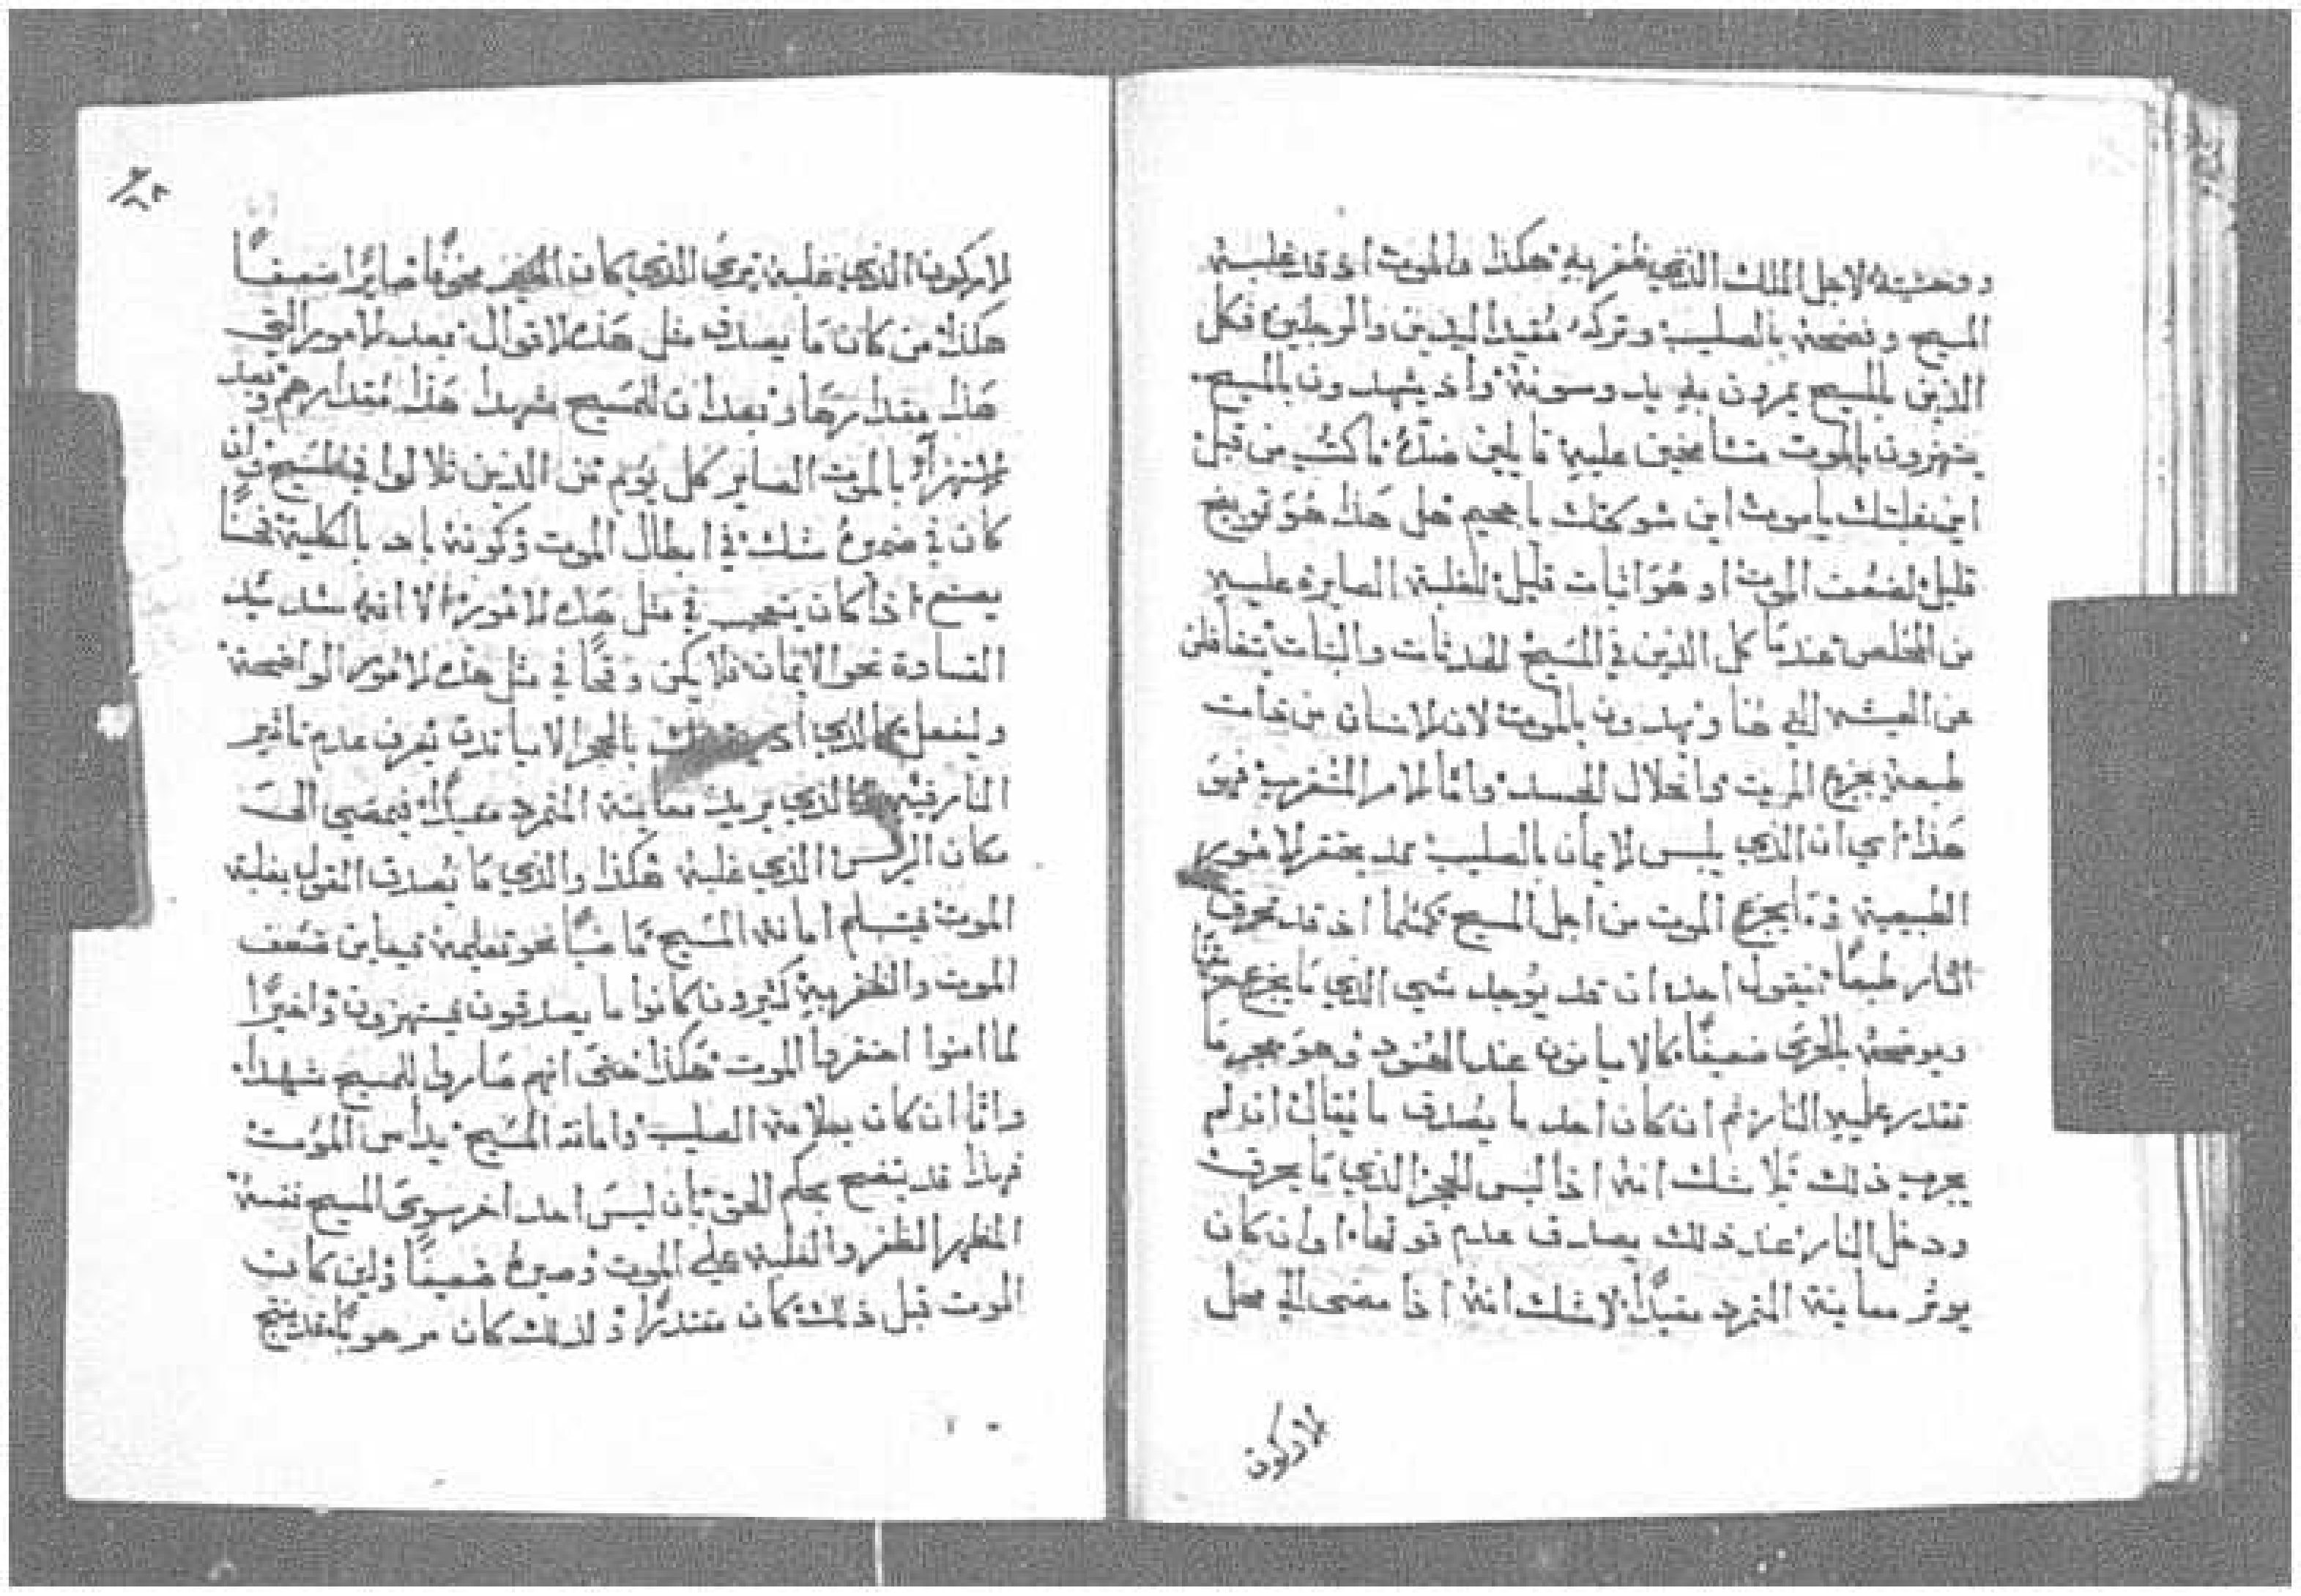 ووحشيته لاجل الملك الذي ظفر به هكذا والموت اذ قد غلبه
المسيح وفضحه بالصليب وتركه مُقيد اليدين والرجلين فكل
الذين بالمسيح يمرون به يدوسونه واذ يشهدون بالمسيح
يتهزون بالموت متشامخين عليه قايلين ضده ما كتب من قبل
اين غلبتك يا موت اين شوكتك يا جحيم هل هذا هو توبيخ
قليل لضعف الموت او هو اثبات قليل للغلبة الصايرة عليه
من المخلص عندما كل الذين في المسيح الحدثات والبنات يتغافلن
عن العيشه التي هنا ويهدون بالموت لان الانسان من
طبعه يجزع الموت وانحلال الجسد واما الامر المستغرب فهو
هذا اي ان الذي يلبس الايمان بالصليب قد يحتقر الامور
الطبيعية وما يجزع الموت من اجل المسيح كمثلما اذ قد تحرق
النار طبعًا فيقول احد ان قد يوجد شي الذي ما يجزع
ويوضحه بالحري ضعيفًا كالاميانون عند الهنود وهو حجر ما
تقدر عليه النار ثم ان كان احد ما يُصدق ما يُقال اذ لم
يجرب ذلك فلا شك انه اذا لبس الحجر الذي ما يحرق
ودخل النار عند ذلك يصادف عدم قوتها وان كان
يوثر معاينة المتمرد مقيدًا لا شك انه اذا مضى الي محل
الاركون
الاركون الذي غلبه يرى الذي كان مخوفًا صايرًا ضعيفًا
هكذا من كان ما يصدق مثل هذه الاقوال بعد الامور التي
هذا مقدارها وبعد ان للمسيح شهدا هذا مُقدارهم وبعد
بالموت الصاير كل يوم من الذين في المسيح وان
كان في ضميره شك في ابطال الموت وكونه باد بالكلية
يصنع اذا كان يتعجب في مثل هذه الامور الا انه شديد
القساوة نحو الايمان فلا يكن وقحًا في مثل هذه الامور الواضحة
وليفعل كالذي بالحجر الاميانون يعرف عدم تاثير
النار فيه كالذي يريد معاينة المتمرد مقيدًا فيمضي الى
مكان الذي غلبه هكذا والذي ما يُصدق القول بغلبة
الموت فيتسلم امانة المسيح ماضيًا نحو تعليمه فيعاين ضعف
الموت والظفر به كثيرون كانوا ما يصدقون يستهزون واخيرًا
لما امنوا احتقروا الموت هكذا حتى انهم صاروا للمسيح شهدا
واما ان كان بعلامة الصليب وامانة المسيح يداس الموت
فهذا قد يتضح بحكم الحق بان ليس احد اخر سوى المسيح نفسه
المظهر الظفر والغلبة على الموت وصيره ضعيفًا ولين كانت
الموت قبل ذلك كان مقتدرًا ولذلك كان مرهوبًا